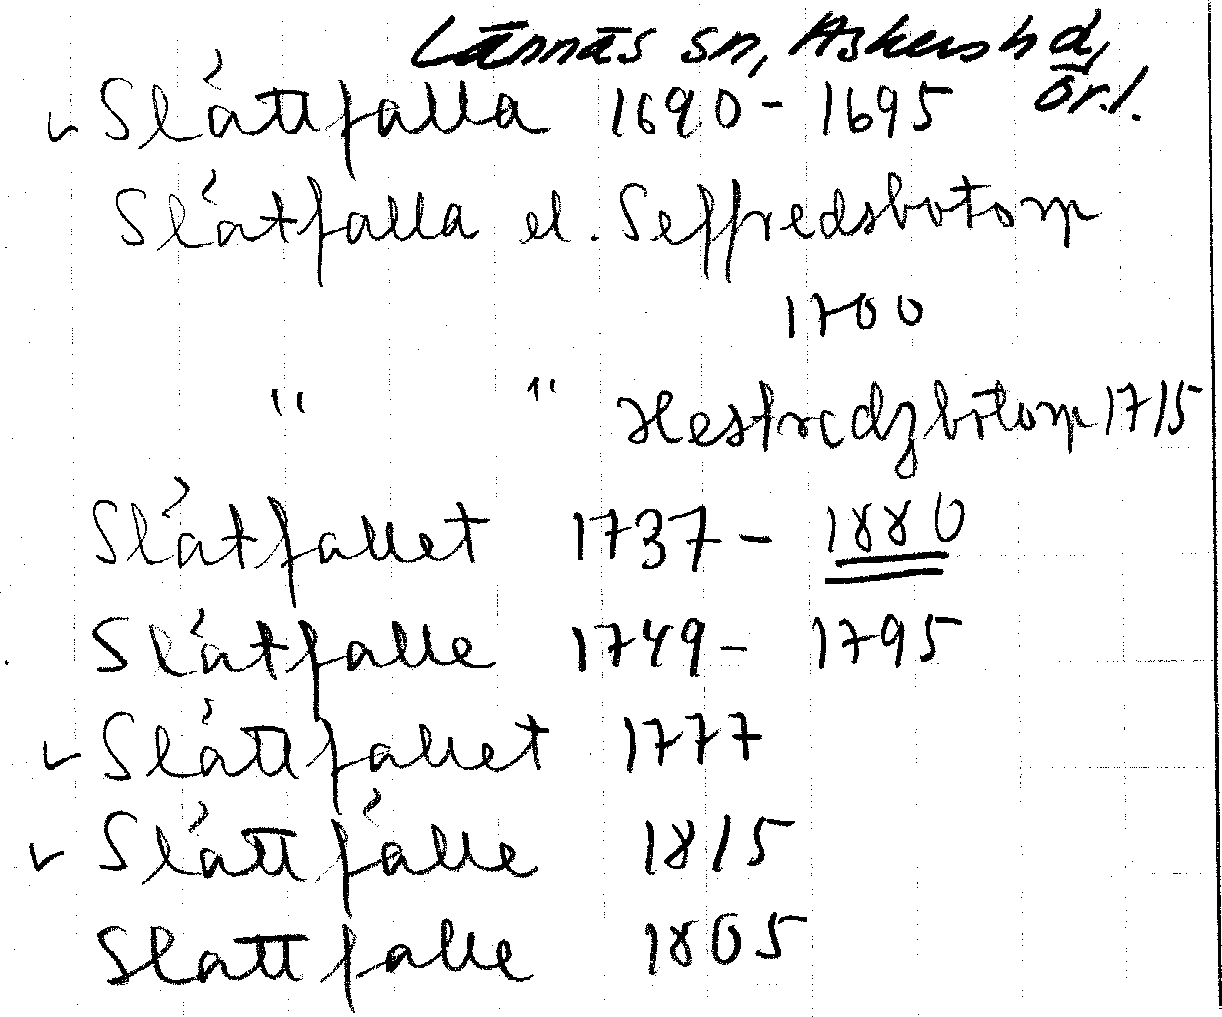 Lännäs sn, Askers hd,
Ör.l.
✓ Slåttfalla 1690 - 1695
Slåtfalla el. Seffredsbotom
1700
" " Hesfredzbotom 1715
Slåtfallet 1737 - 1880
Slåtfalle 1749 - 1795
✓ Slåttfallet 1777
✓ Slåttfålle 1815
Slattfalle 1805